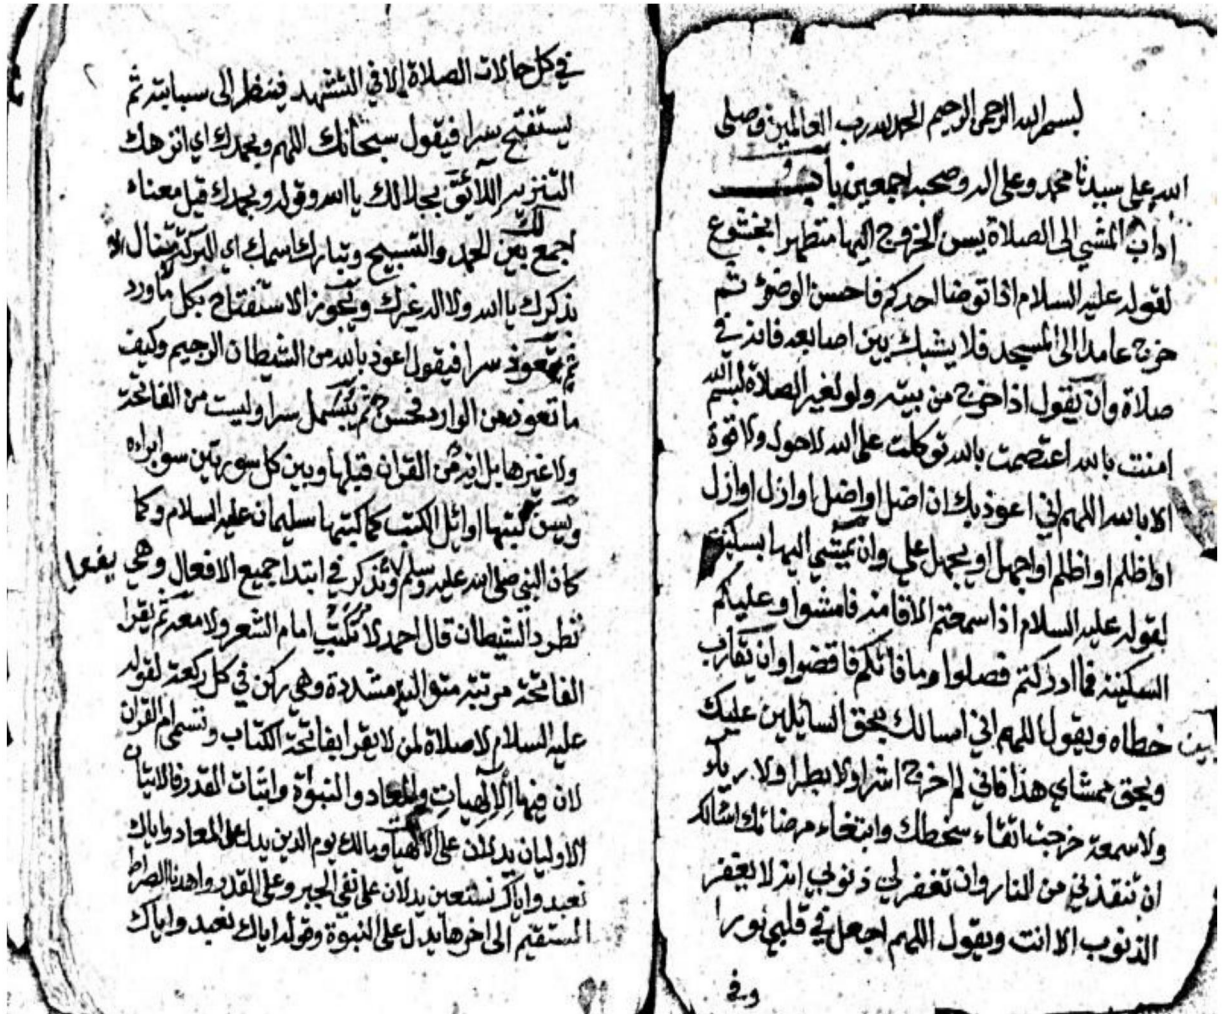 بسم الله الرحمن الرحيم الحمد لله رب العالمين وصلى
الله على سيدنا محمد وعلى اله وصحبه اجمعين باب
اداب المشي الى الصلاة يسن الخروج اليها متطهرا بخشوع
لقوله عليه السلام اذا توضا احدكم فاحسن الوضوء ثم
خرج عامدا الى المسجد فلا يشبك بين اصابعه فانه في
صلاة وان يقول اذا خرج من بيته ولو لغير الصلاة بسم الله
امنت بالله اعتصمت بالله توكلت على الله لا حول ولا قوة
الا بالله اللهم اني اعوذ بك ان اضل او اضل او ازل او ازل
او اظلم او اظلم او اجهل او يجهل علي وان يمشي اليها بسكينة
لقوله عليه السلام اذا سمعتم الاقامة فامشوا وعليكم
السكينة فما ادركتم فصلوا وما فاتكم فاقضوا وان يقارب
خطاه ويقول اللهم اني اسالك بحق السايلين عليك
وبحق ممشاي هذا فاني لم اخرج اشرا ولا بطرا ولا رياء
ولا سمعة خرجت اتقاء سخطك وابتغاء مرضاتك اسالك
ان تنقذني من النار وان تغفر لي ذنوبي انه لا يغفر
الذنوب الا انت ويقول اللهم اجعل في قلبي نورا
وفي
٢
في كل حالات الصلاة الا في التشهد فينظر الى سبابته ثم
يستفتح سرا فيقول سبحانك اللهم وبحمدك اي انزهك
التنزيه اللائق بجلالك يا الله وقوله وبحمدك قيل معناه
اجمع لك بين الحمد والتسبيح وتبارك اسمك اي البركة تنال
بذكرك يا الله ولا اله غيرك ويجوز الاستفتاح بكل ما ورد
ثم يتعوذ سرا فيقول اعوذ بالله من الشيطان الرجيم وكيف
ما تعوذ من الوارد فحسن ثم يبسمل سرا وليست من الفاتحة
ولا غيرها بل اية من القران قبلها وبين كل سورتين سوى براه
ويسن كتبتها اوائل الكتب كما كتبها سليمان عليه السلام وكما
كان النبي صلى الله عليه وسلم يفعل وتذكر في ابتدا جميع الافعال وهي
تطرد الشيطان قال احمد لا تكتب امام الشعر ولا معه ثم يقرا
الفاتحة مرتبة متوالية مشددة وهي ركن في كل ركعة لقوله
عليه السلام لا صلاة لمن لا يقرا بفاتحة الكتاب وتسمى ام القران
لان فيها الالهيات والمعاد والنبوة واثبات القدر فالايتان
الاوليان يدلان على الالهيات ومالك يوم الدين يدل على المعاد واياك
نعبد واياك نستعين يدلان على نفي الجبر وعلى القدر واهدنا الصراط
المستقيم الى اخرها يدل على النبوة وقوله اياك نعبد واياك